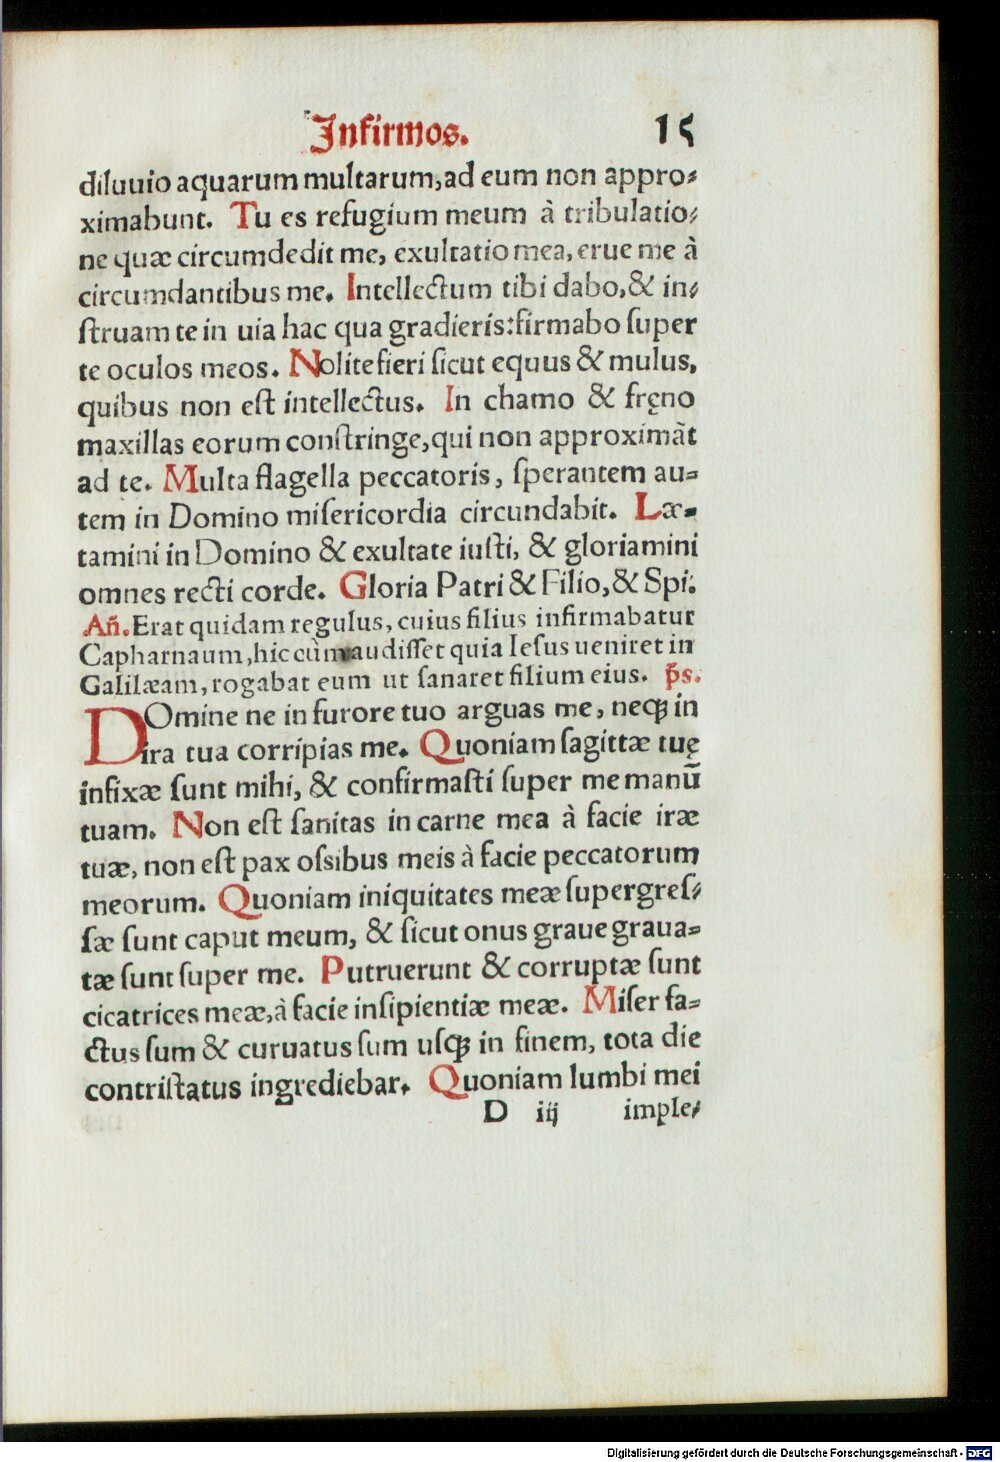 Infirmos. 15
diluuio aquarum multarum,ad eum non appro⸗
ximabunt. Tu es refugium meum à tribulatio⸗
ne quæ circumdedit me, exultatio mea, erue me à
circumdantibus me. Intellectum tibi dabo,& in⸗
ſtruam te in uia hac qua gradieris:firmabo ſuper
te oculos meos. Nolite fieri ſicut equus & mulus,
quibus non eſt intellectus. In chamo & fręno
maxillas eorum conſtringe,qui non approximãt
ad te. Multa flagella peccatoris, ſperantem au⸗
tem in Domino miſericordia circundabit. Læ⸗
tamini in Domino & exultate iuſti, & gloriamini
omnes recti corde. Gloria Patri & Filio,& Spi.
Añ.Erat quidam regulus, cuius filius infirmabatur
Capharnaum,hic cùm audiſſet quia Ieſus ueniret in
Galilæam, rogabat eum ut ſanaret filium eius. p̃s.
DOmine ne in furore tuo arguas me, neqꝫ in
ira tua corripias me. Quoniam ſagittæ tuę
infixæ ſunt mihi, & confirmaſti ſuper me manū
tuam. Non eſt ſanitas in carne mea à facie iræ
tuæ, non eſt pax oſsibus meis à facie peccatorum
meorum. Quoniam iniquitates meæ ſupergreſ⸗
ſæ ſunt caput meum, & ſicut onus graue graua⸗
tæ ſunt ſuper me. Putruerunt & corruptæ ſunt
cicatrices meæ,à facie inſipientiæ meæ. Miſer fa⸗
ctus ſum & curuatus ſum uſqꝫ in finem, tota die
contriſtatus ingrediebar. Quoniam lumbi mei
D iij imple⸗
Digitalisierung gefördert durch die Deutsche Forschungsgemeinschaft - DFG